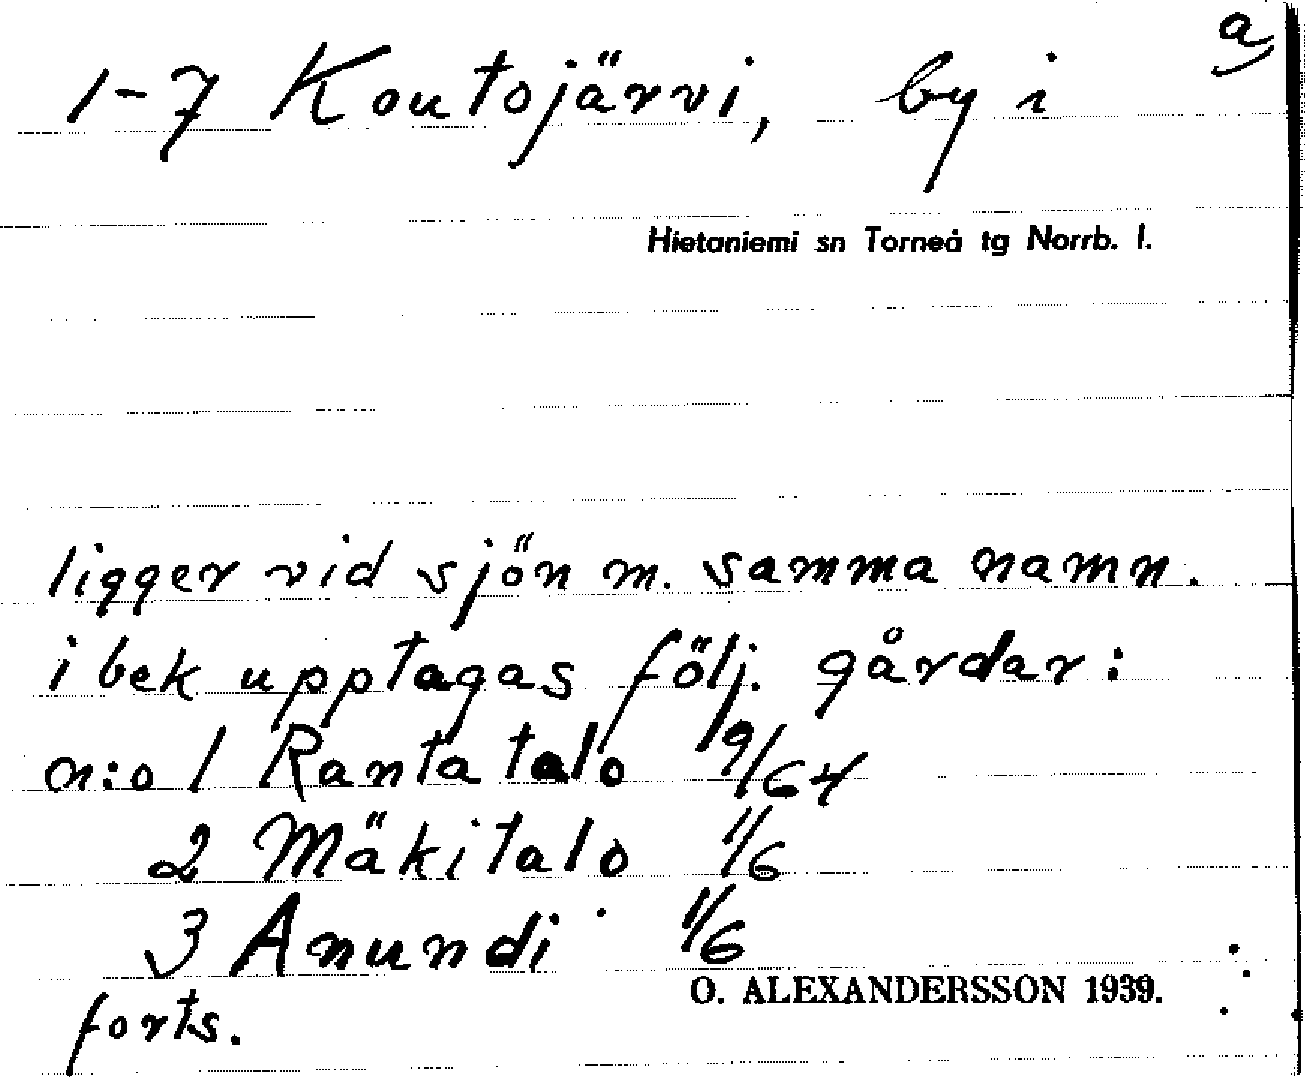 a)
1-7 Koutojärvi, by i
Hietaniemi sn Torneå tg Norrb. l.
ligger vid sjön m. samma namn.
i bek upptagas följ. gårdar:
n:o 1 Rantatalo 9/64
2 Mäkitalo 1/6
3 Anundi 1/6
O. ALEXANDERSSON 1939.
forts.